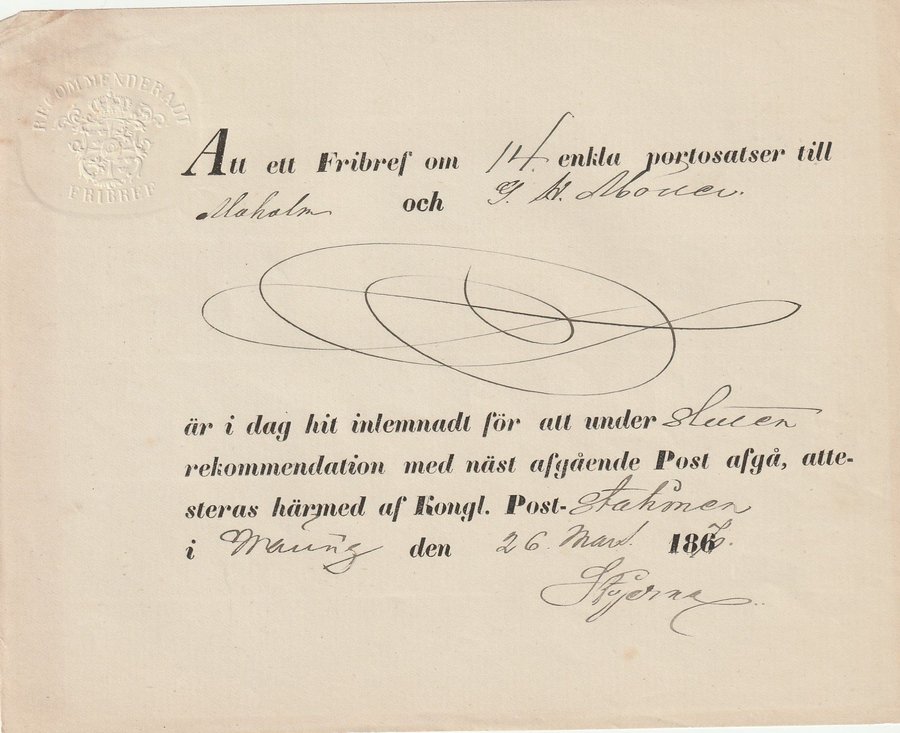 RECOMMENDERADT
FRIBREF
Att ett Fribref om 14 enkla portosatser till
Moholm och G. W. Mörner.
är i dag hit inlemnadt för att under sluten
rekommendation med näst afgående Post afgå, atte-
steras härmed af Kongl. Post-stationen
i den 26 Mars. 186
Stjerna